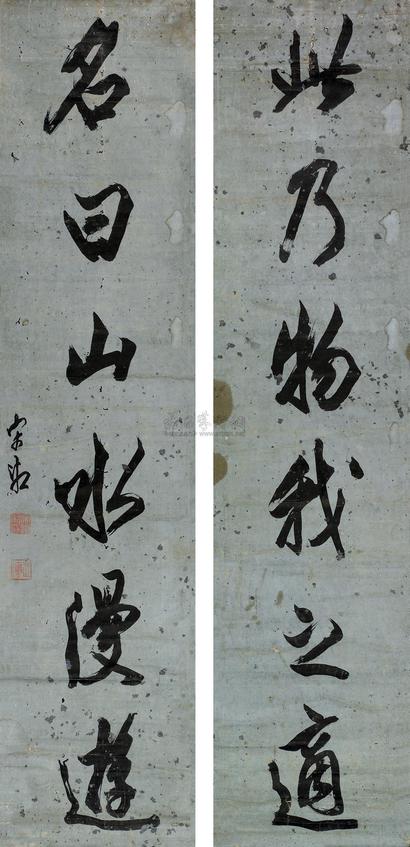 此乃物我之適
名曰山水漫遊
宋湘